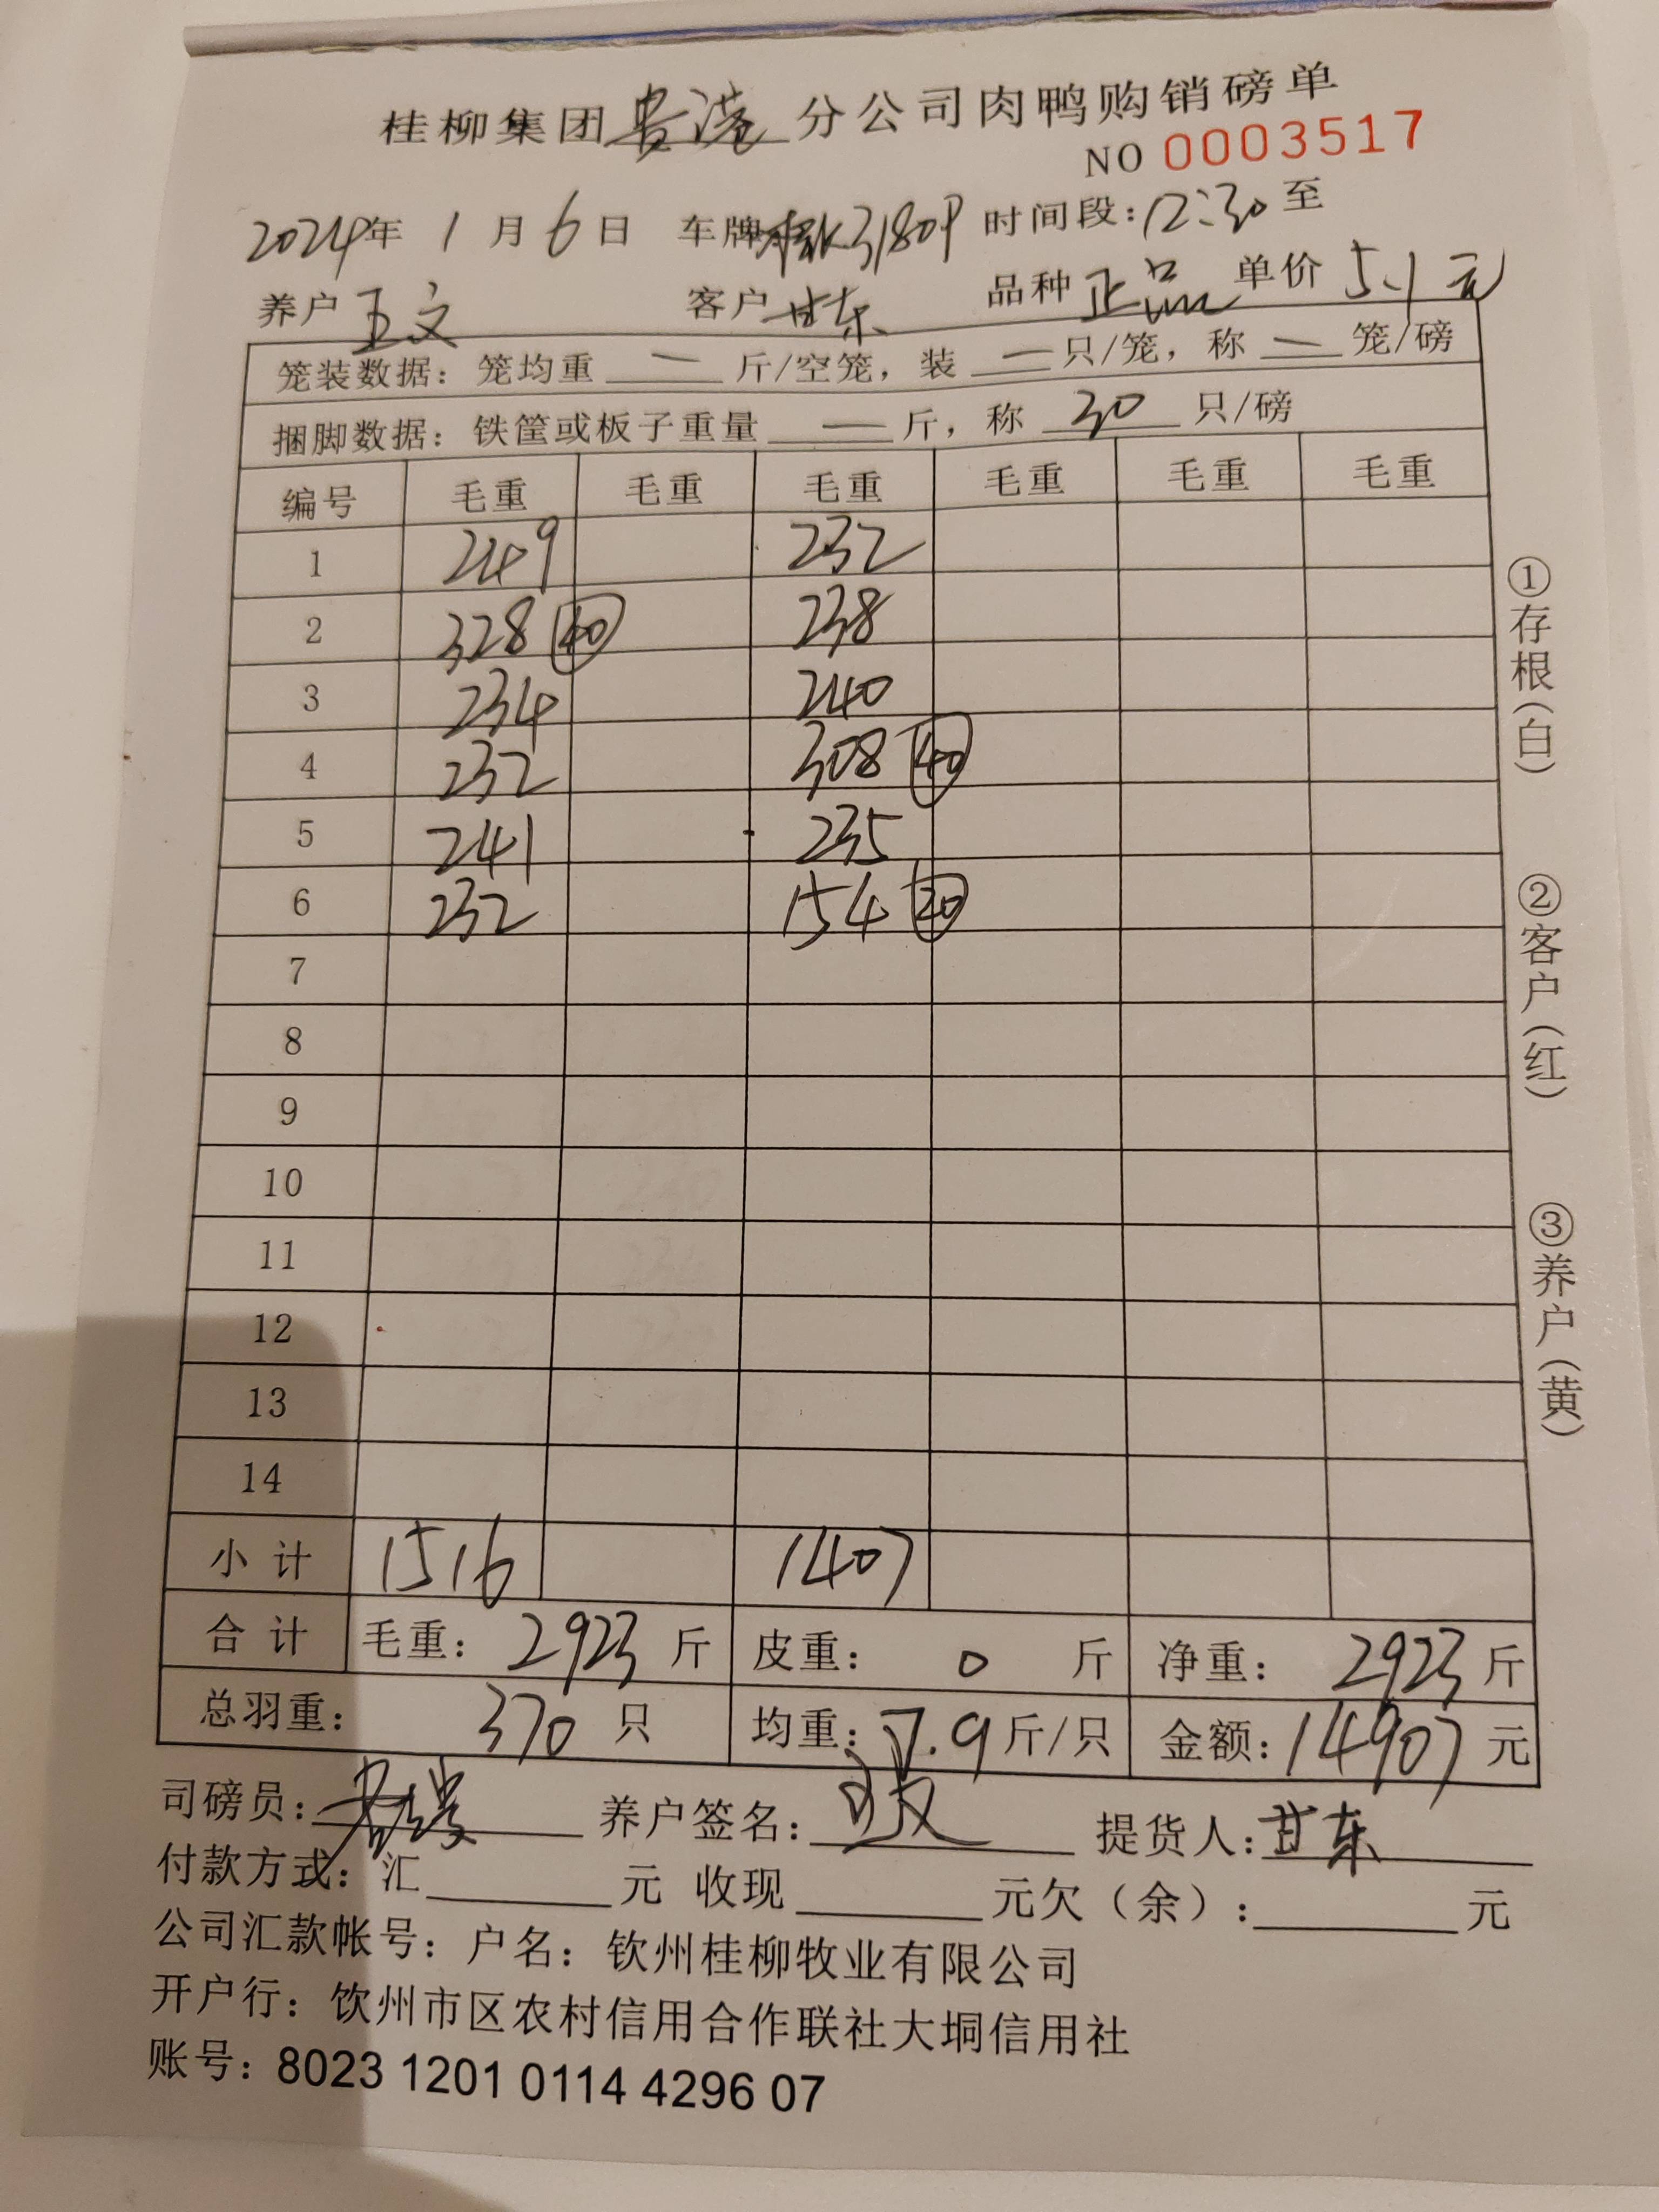 桂柳集团贵港分公司肉鸭购销磅单
NO 0003517
2024年 1 月 6 日 车牌 31809 时间段:12:30 至
养户 王文 客户 甘东 品种 正品 单价 5.1元
笼装数据：笼均重 — 斤/空笼，装 — 只/笼，称 — 笼/磅
捆脚数据：铁筐或板子重量 — 斤，称 30 只/磅
编号 毛重 毛重 毛重 毛重 毛重 毛重
1 249 232
2 328 40 238
3 234 240
4 232 308 40
5 241 235
6 232 154 20
7
8
9
10
11
12
13
14
小计 1516 1407
合计 毛重：2923 斤 皮重：0 斤 净重：2923 斤
总羽重：370 只 均重：7.9 斤/只 金额：14907 元
司磅员： 养户签名：王文 提货人：甘东
付款方式：汇 元 收现 元欠（余）： 元
公司汇款帐号：户名：钦州桂柳牧业有限公司
开户行：钦州市区农村信用合作联社大垌信用社
账号：8023 1201 0114 4296 07
①存根（白）
②客户（红）
③养户（黄）